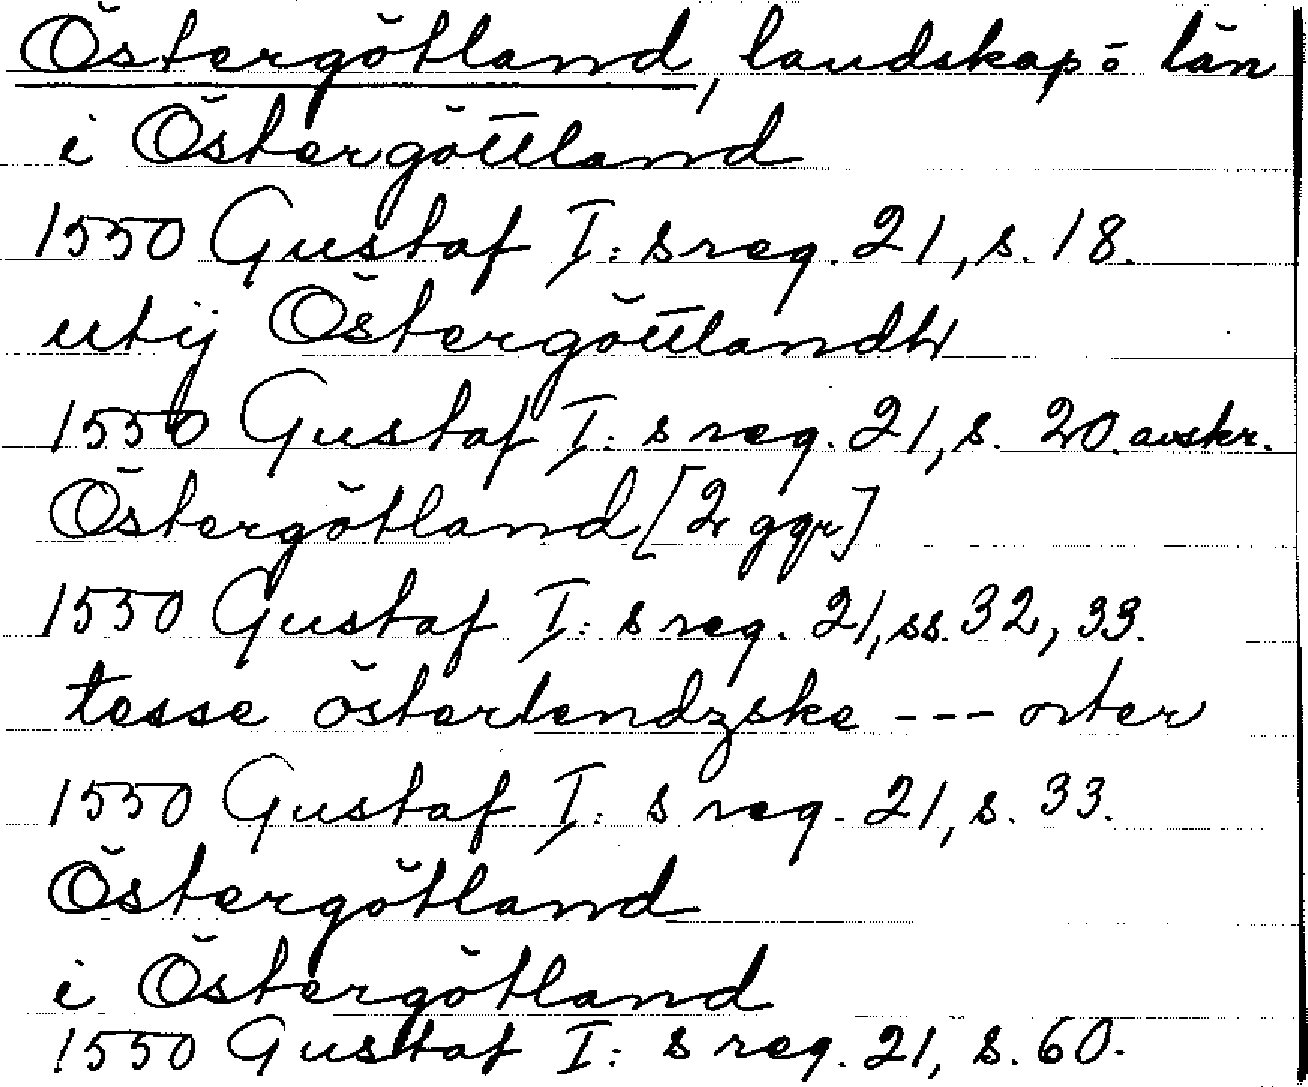 Östergötland, landskap o. län
i Östergöttland
1550 Gustaf I:s reg. 21, s. 18.
utij Östergöttlandh
1550 Gustaf I:s reg. 21, s. 20. avskr.
Östergötland [2 ggr]
1550 Gustaf I:s reg. 21, ss. 32, 33.
tesse österlendzske --- orter
1550 Gustaf I:s reg. 21, s. 33.
Östergötland
i Östergötland
1550 Gustaf I:s reg. 21, s. 60.